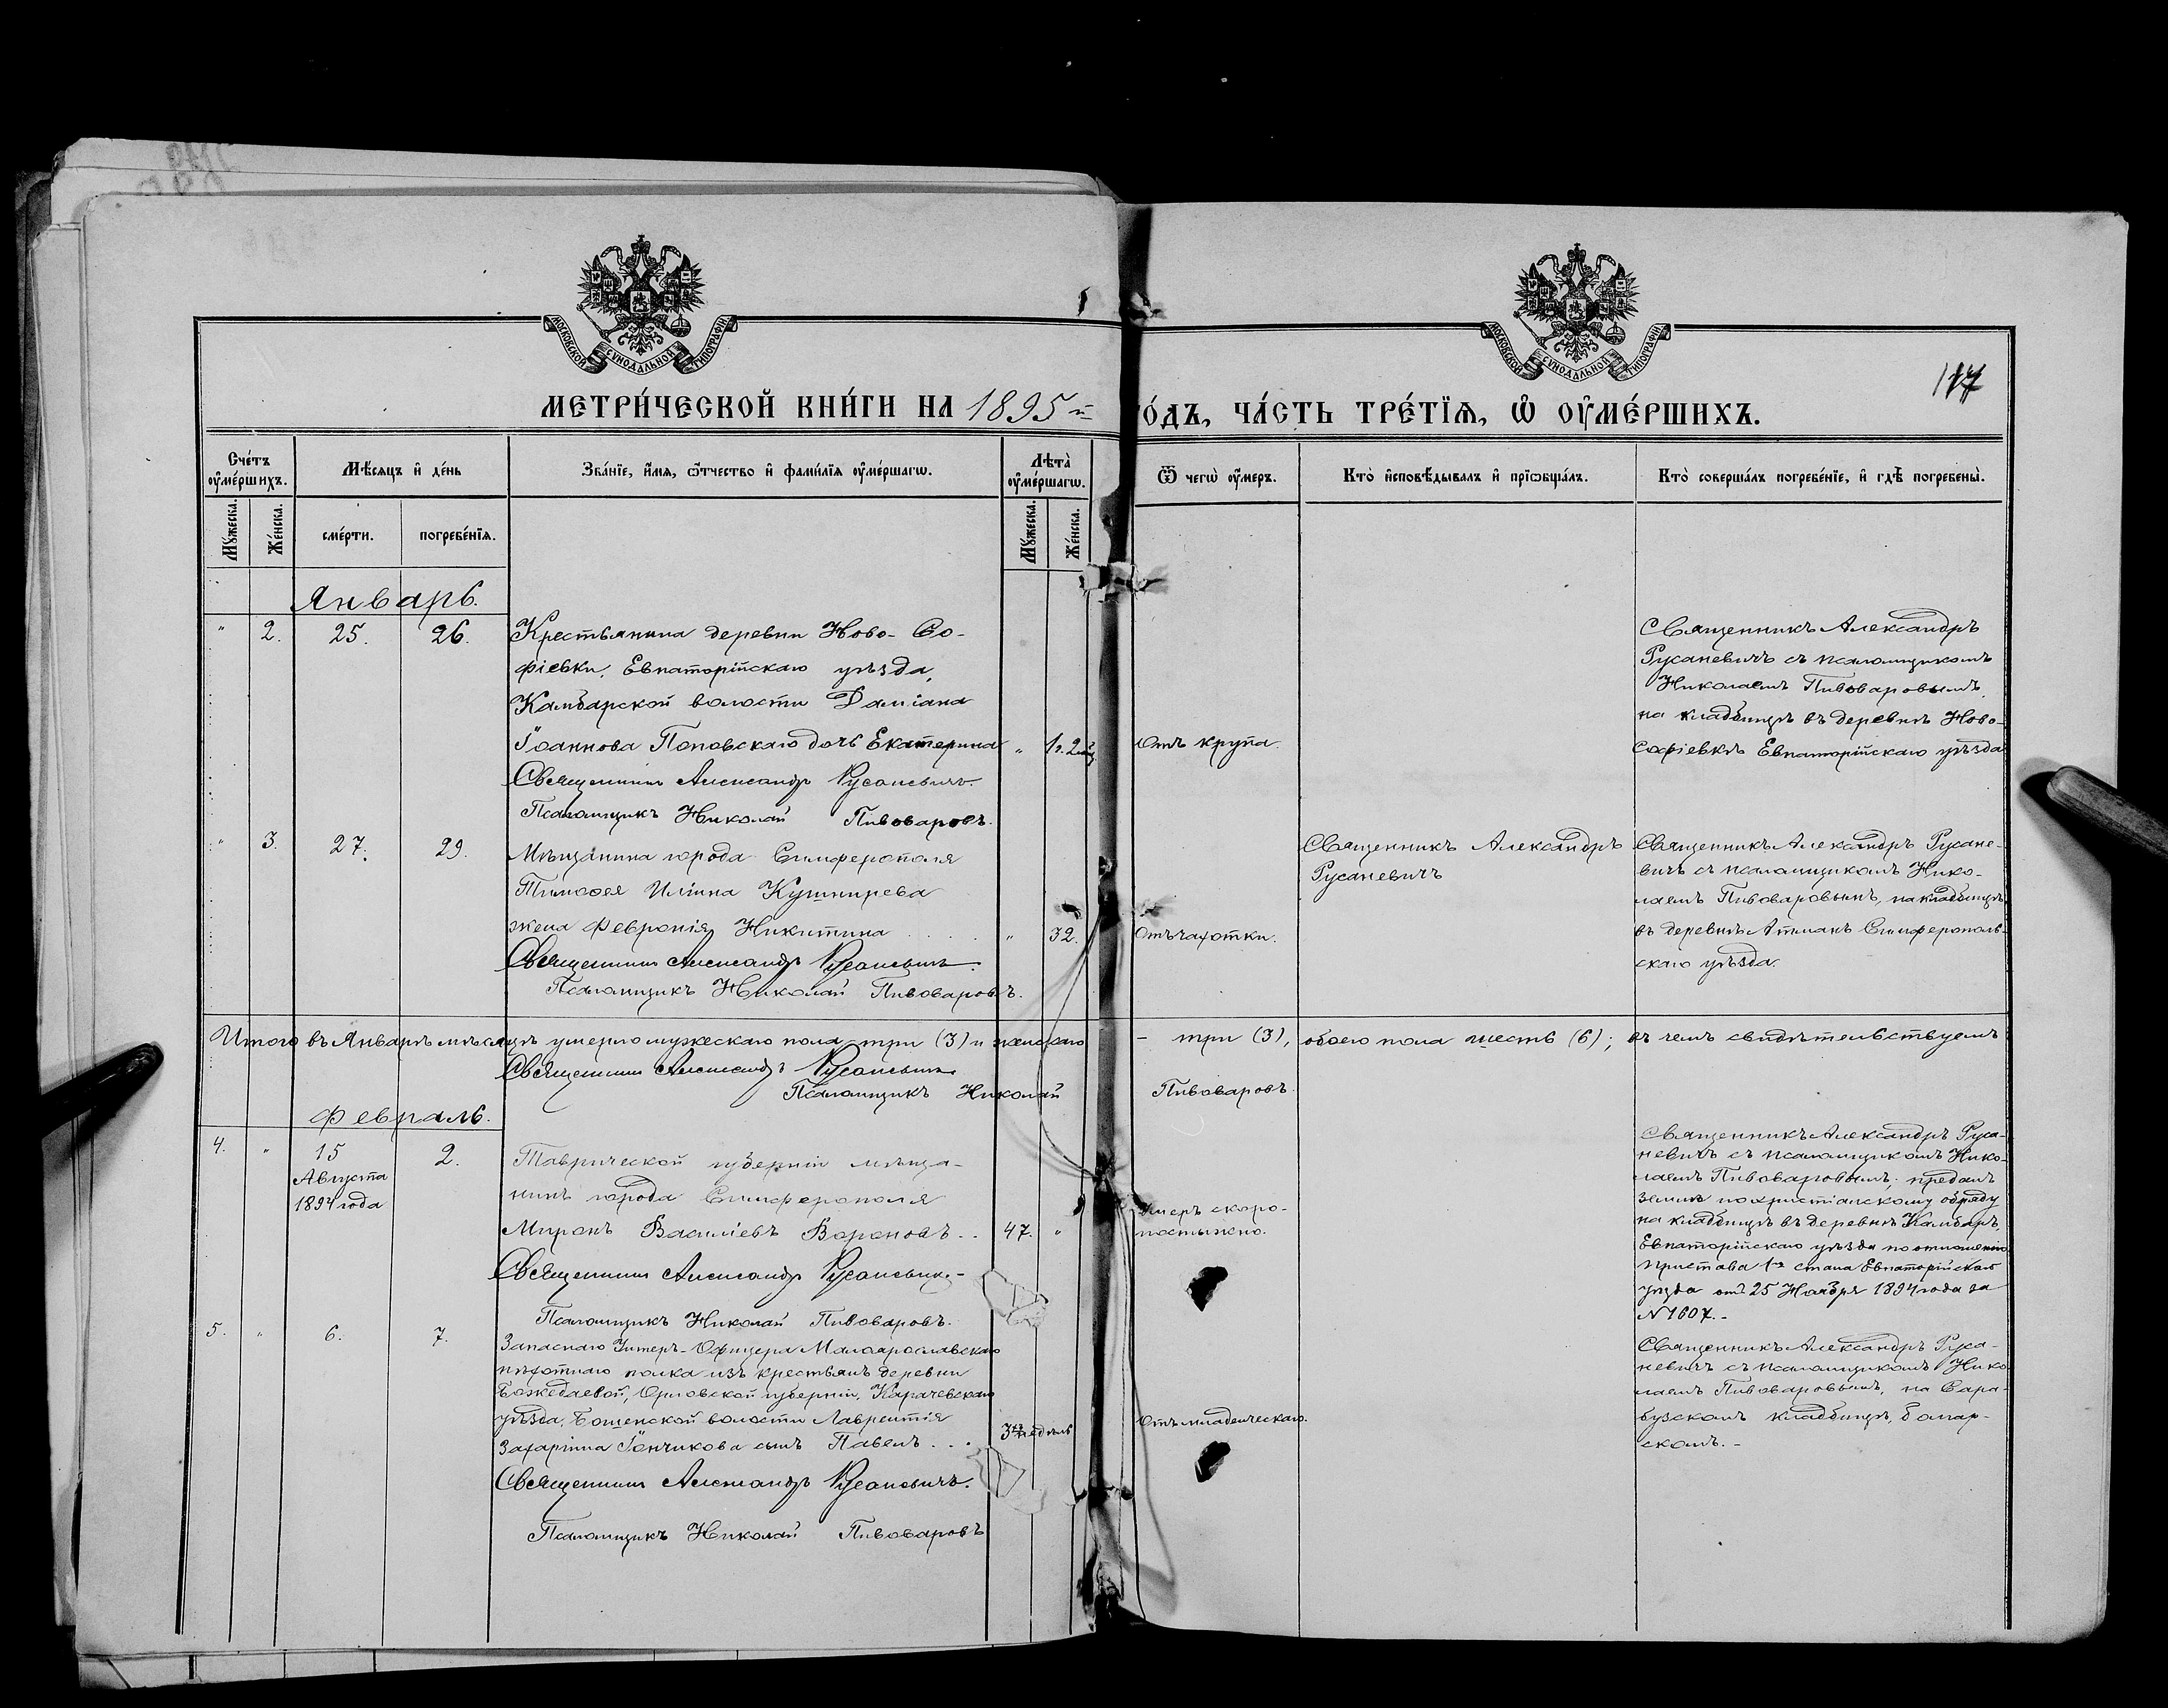 МОСКОВСКОЙ СѴНОДАЛЬНОЙ ТИПОГРАФІИ
МОСКОВСКОЙ СѴНОДАЛЬНОЙ ТИПОГРАФІИ
117
МЕТРИ́ЧЕСКОЙ КНИ́ГИ НА 1895 й
ГО́ДЪ, ЧА́СТЬ ТРЕ́ТЇѦ, Ѡ҆ ОУ҆МЕ́РШИХЪ.
Сче́тъ оу҆ме́ршихъ.
Мѣ́сѧцъ и҆ де́нь
Зва́нїе, и҆́мѧ, ѻ҆́тчество и҆ фами́лїѧ оу҆ме́ршагѡ.
Лѣ́та оу҆ме́ршагѡ.
Ѿ чегѡ̀ оу҆́меръ.
Кто̀ и҆сповѣ́дывалъ и҆ прїѡбща́лъ.
Кто̀ соверша́лъ погребе́нїе, и҆ гдѣ̀ погребены̀.
Мꙋ́жеска.
Же́нска.
сме́рти.
погребе́нїѧ.
Мꙋ́жеска.
Же́нска.
Январь.
" 2. 25. 26.
Крестьянина деревни Ново-Со-
фіевки, Евпаторійскаго уѣзда,
Камбарской волости Даміана
Іоаннова Поповскаго дочь Екатерина " 1г. 2 мѣс.
Священникъ Александръ Русаневичъ.
Псаломщикъ Николай Пивоваровъ.
Отъ крупа.
Священникъ Александръ
Русаневичъ съ псаломщикомъ
Николаемъ Пивоваровымъ,
на кладбищѣ въ деревнѣ Ново-
софіевкѣ Евпаторійскаго уѣзда
" 3. 27. 29.
Мѣщанина города Симферополя
Тимоѳея Иліина Кушнирева
жена Февронія Никитина . . . . . " 32.
Священникъ Александръ Русаневичъ.
Псаломщикъ Николай Пивоваровъ.
Отъ чахотки.
Священникъ Александръ
Русаневичъ
Священникъ Александръ Русане-
вичъ съ псаломщикомъ Нико-
лаемъ Пивоваровымъ, на кладбищѣ
въ деревнѣ Атманъ Симферополь-
скаго уѣзда.
Итого въ Январѣ мѣсяцѣ умерло мужескаго пола три (3) и женскаго - три (3), обоего пола шесть (6); въ чемъ свидѣтельствуемъ
Священникъ Александръ Русаневичъ
Псаломщикъ Николай Пивоваровъ.
Февраль.
4. " 15 2.
Августа
1894 года
Таврической губерніи мѣща-
нинъ города Симферополя
Миронъ Василіевъ Вороновъ . . 47. "
Священникъ Александръ Русаневичъ.-
Псаломщикъ Николай Пивоваровъ.
Умеръ скоро-
постыжно.
Священникъ Александръ Руса-
невичъ съ псаломщикомъ Нико-
лаемъ Пивоваровымъ, преданъ
землѣ по христіанскому обряду
на кладбищѣ въ деревнѣ Камбаръ,
Евпаторійскаго уѣзда по отношенію
Пристава 1го стана Евпаторійскаго
уѣзда отъ 25 Ноября 1894 года за
N 1607.-
5. " 6. 7.
Запаснаго Унтеръ-Офицера Малоярославскаго
пѣхотнаго полка изъ крестьянъ деревни
Орловской губерніи, Карачевскаго
уѣзда, волости Лаврентія
Захаріина сынъ Павелъ . . . 3 недѣль
Священникъ Александръ Русаневичъ.
Псаломщикъ Николай Пивоваровъ
Отъ младенческаго.
Священникъ Александръ Руса-
невичъ съ псаломщикомъ Нико-
лаемъ Пивоваровымъ, на Сара-
бузскомъ кладбищѣ, болгар-
скомъ.-